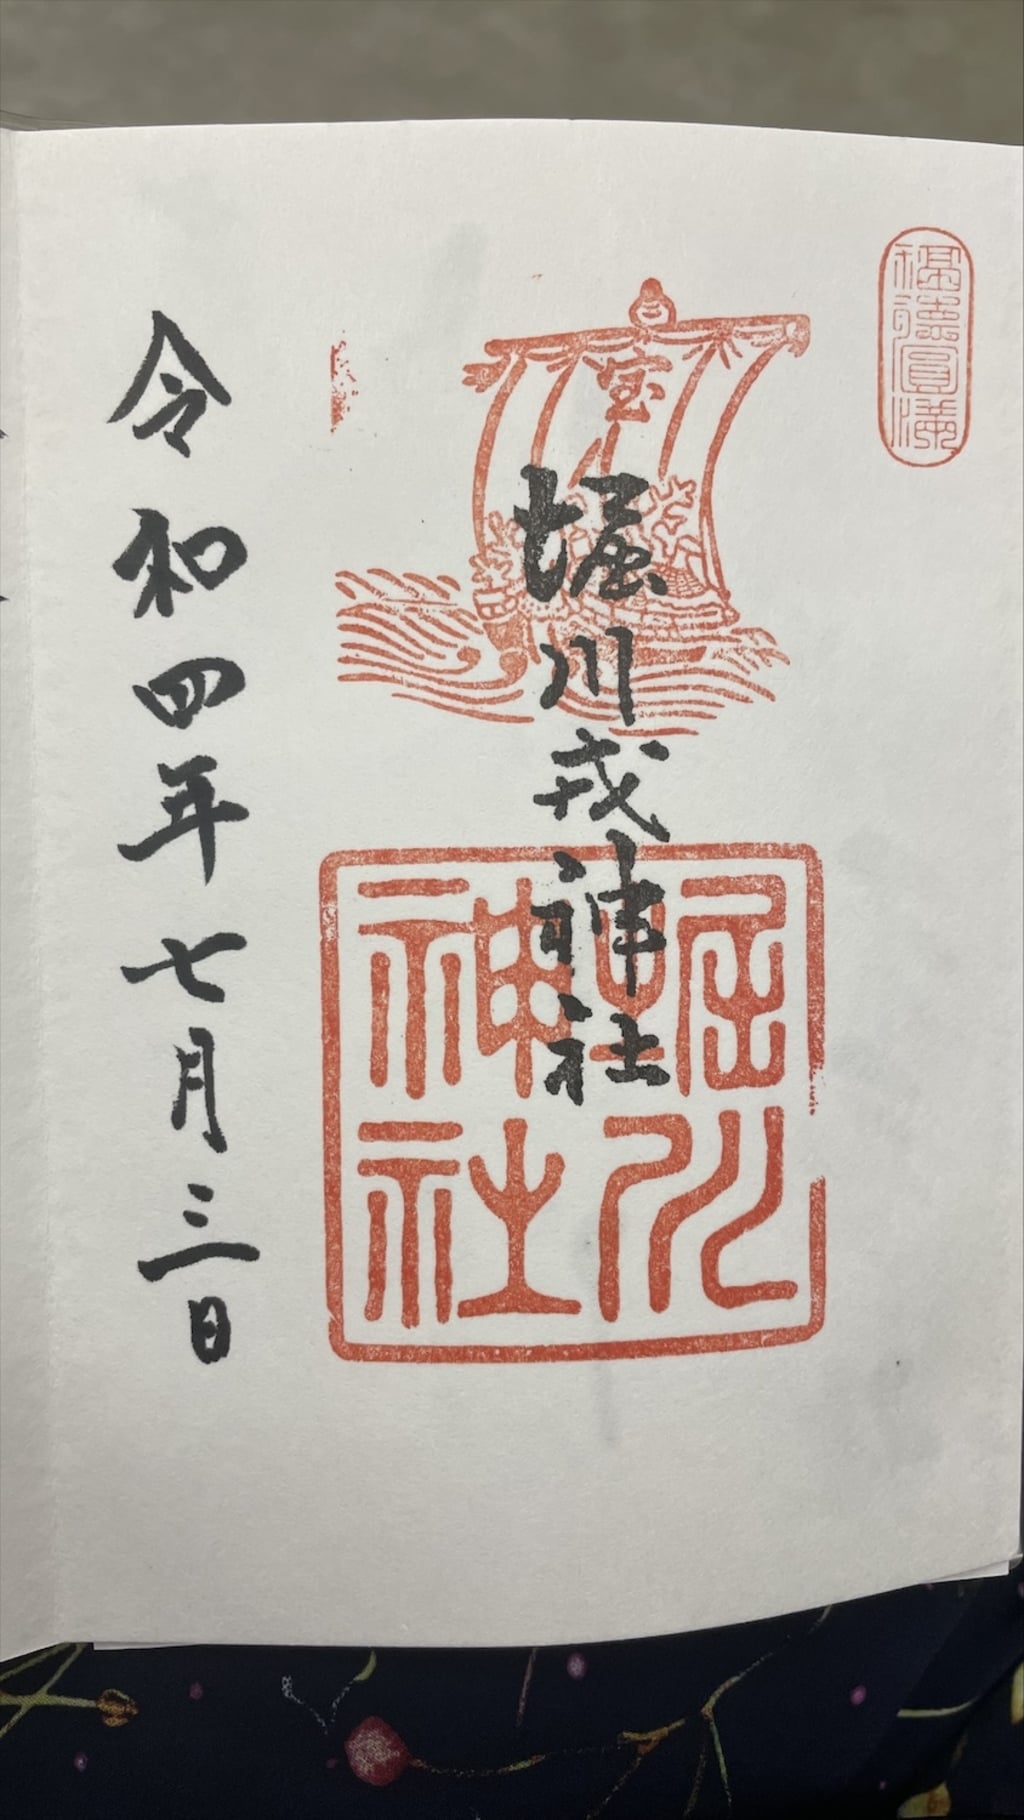 福徳圓満
宝
堀川戎神社
堀川
神社
令和四年七月三日